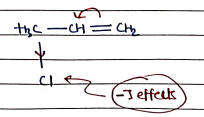 H₃C — CH = CH₂
Cl
-I effects